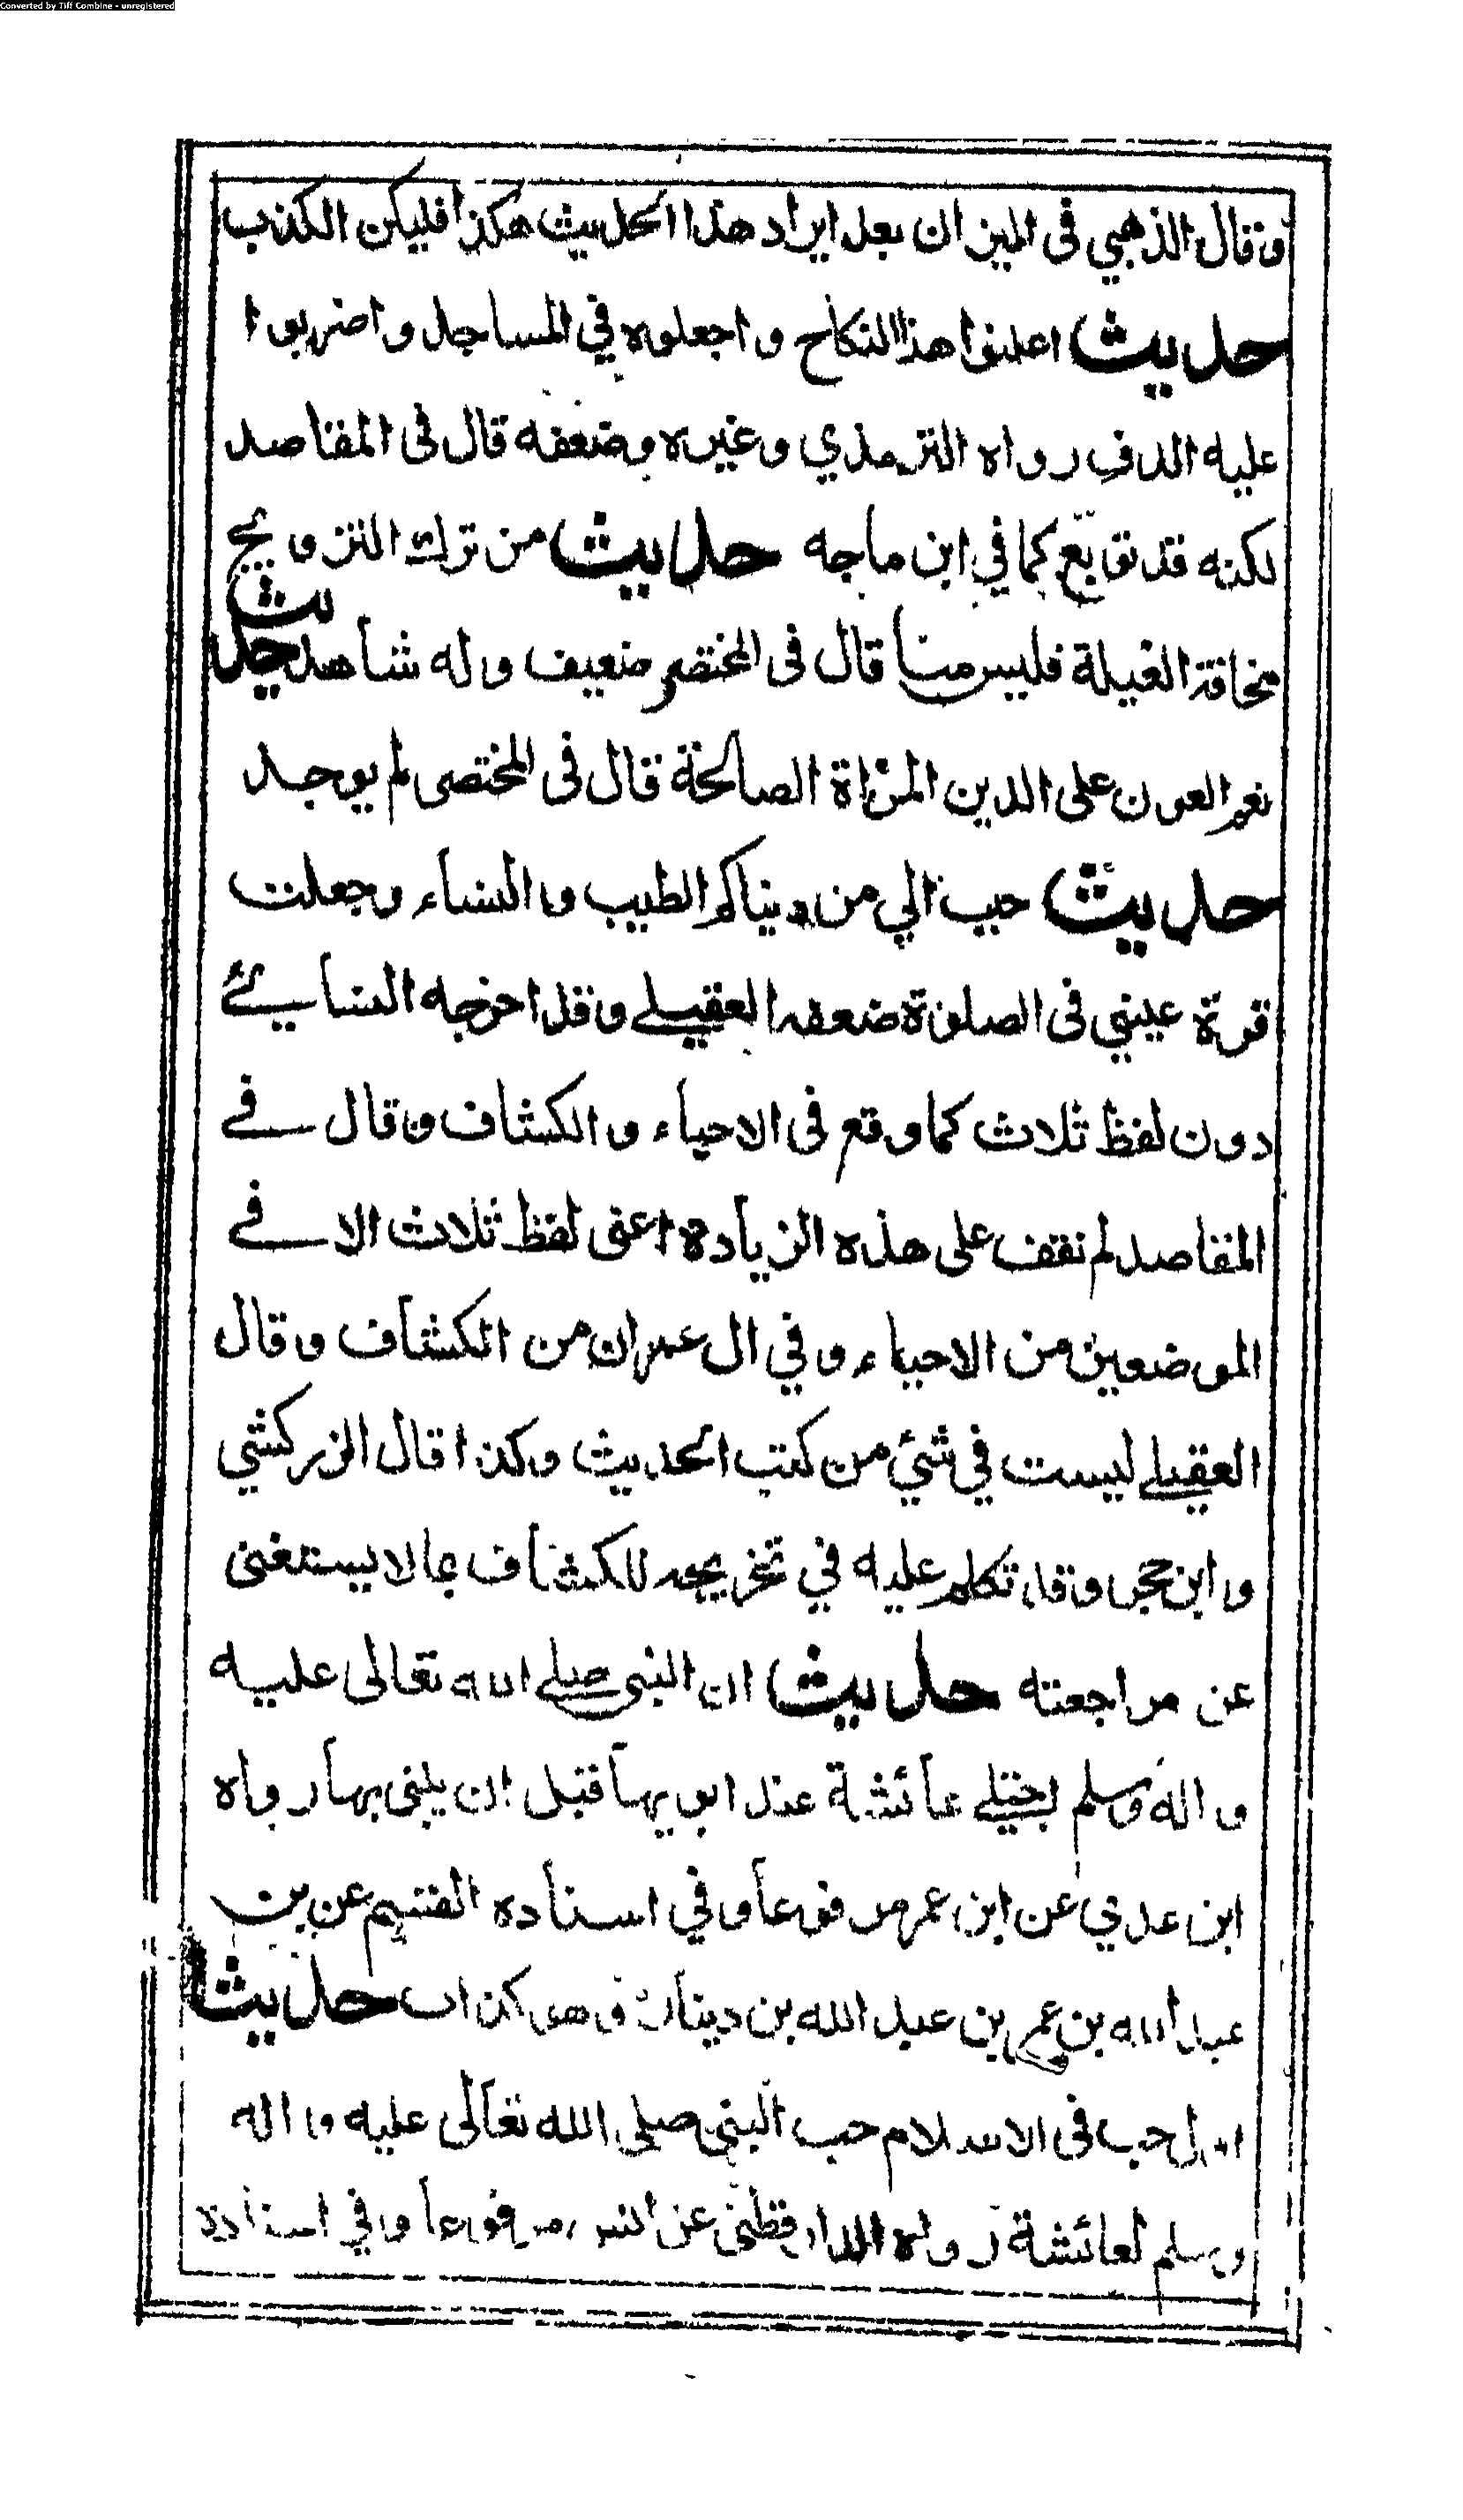 Converted by Tiff Combine - unregistered
وقال الذهبي في الميزان بعد ايراد هذا الحديث هكذا فليكن الكذب
حديث اعلنوا هذا النكاح واجعلوه في المساجد واضربوا
عليه الدف رواه الترمذي وغيره وضعفه قال في المقاصد
لكنه قد توبع كما في ابن ماجه حديث من ترك التزويج
مخافة الغيلة فليس منا قال في المختصر ضعيف وله شاهد حديث
نعم العون على الدين المرأة الصالحة قال في المختصر لم يوجد
حديث حبب الي من دنياكم الطيب والنساء وجعلت
قرة عيني في الصلوة ضعفه العقيلي وقد اخرجه النسائي
دون لفظ ثلاث كما وقع في الاحياء والكشاف وقال في
المقاصد لم نقف على هذه الزيادة اعني لفظ ثلاث الا في
الموضعين من الاحياء وفي ال عمران من الكشاف وقال
العقيلي ليست في شئ من كتب الحديث وكذا قال الزركشي
وابن حجر وقد تكلم عليه في تخريجه للكشاف بما لا يستغنى
عن مراجعته حديث ان النبي صلى الله تعالى عليه
واله وسلم اجتلى عائشة عند ابويها قبل ان يبنى بها رواه
ابن عدي عن ابن عمر مرفوعا وفي اسناده القسيم عن بن
عبد الله بن عمر بن عبد الله بن دينار وهو كذاب حديث
اول حب في الاسلام حب النبي صلى الله تعالى عليه واله
وسلم لعائشة رواه الدارقطني عن انس مرفوعا وفي اسناده